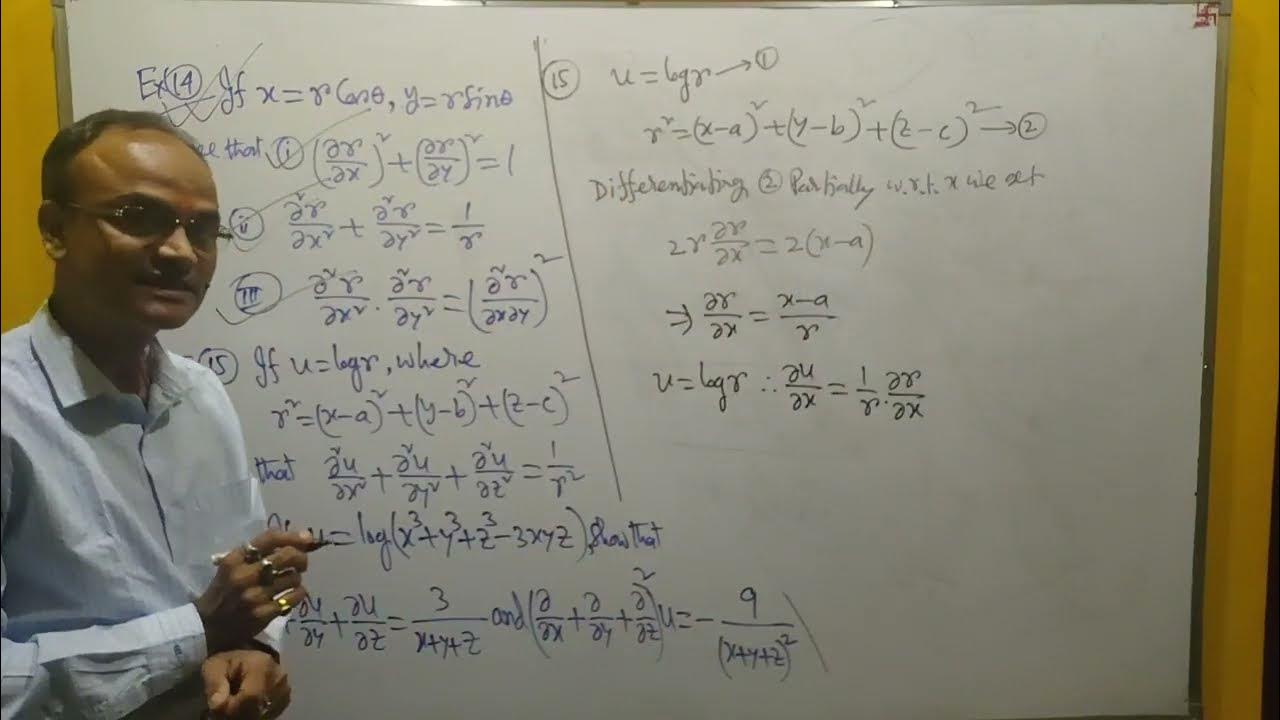 Ex (14) If x = r Cosθ, y = r Sinθ
that (i) (∂r/∂x)² + (∂r/∂y)² = 1
(ii) ∂²r/∂x² + ∂²r/∂y² = 1/r
(iii) ∂²r/∂x² . ∂²r/∂y² = (∂²r/∂x∂y)²
(15) If u = logr, where
r² = (x-a)² + (y-b)² + (z-c)²
that ∂²u/∂x² + ∂²u/∂y² + ∂²u/∂z² = 1/r²
u = log(x³+y³+z³-3xyz), Show that
∂u/∂y + ∂u/∂z = 3/(x+y+z) and (∂/∂x + ∂/∂y + ∂/∂z)² u = - 9/(x+y+z)²
(15) u = logr → (1)
r² = (x-a)² + (y-b)² + (z-c)² → (2)
Differentiating (2) Partially w.r.t. x we get
2r ∂r/∂x = 2(x-a)
⇒ ∂r/∂x = (x-a)/r
u = logr ∴ ∂u/∂x = 1/r . ∂r/∂x